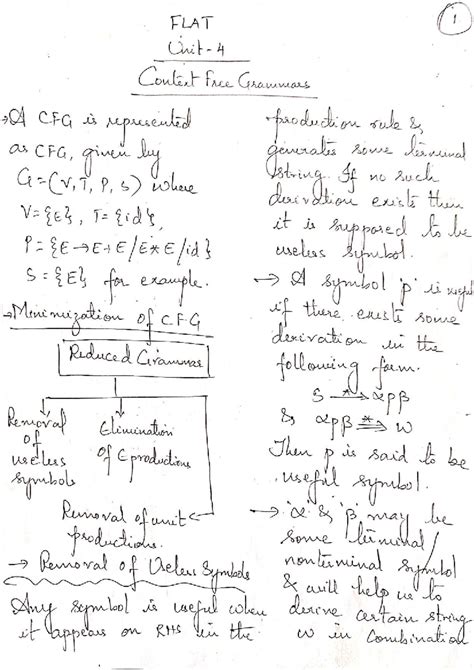 1
FLAT
Unit-4
Context Free Grammars
→ A CFG is represented
as CFG, given by
G=(V,T,P,S) where
V={E}, T={id},
P={E→E+E/E*E/id}
S={E} for example.
→ Minimization of C.F.G
Reduced Grammar
Removal
of
useless
symbols
Elimination
of ε productions
Removal of unit
productions.
→ Removal of Useless Symbols
Any symbol is useful when
it appears on RHS in the
production rule &
generates some terminal
string. If no such
derivation exists then
it is supposed to be
useless symbol.
→ A symbol 'p' is useful
if there exists some
derivation in the
following form.
S *⇒ αpβ
& αpβ *⇒ w
Then p is said to be
useful symbol.
→ 'α' & 'β' may be
some terminal/
nonterminal symbol
& will help us to
derive certain string
w in combination